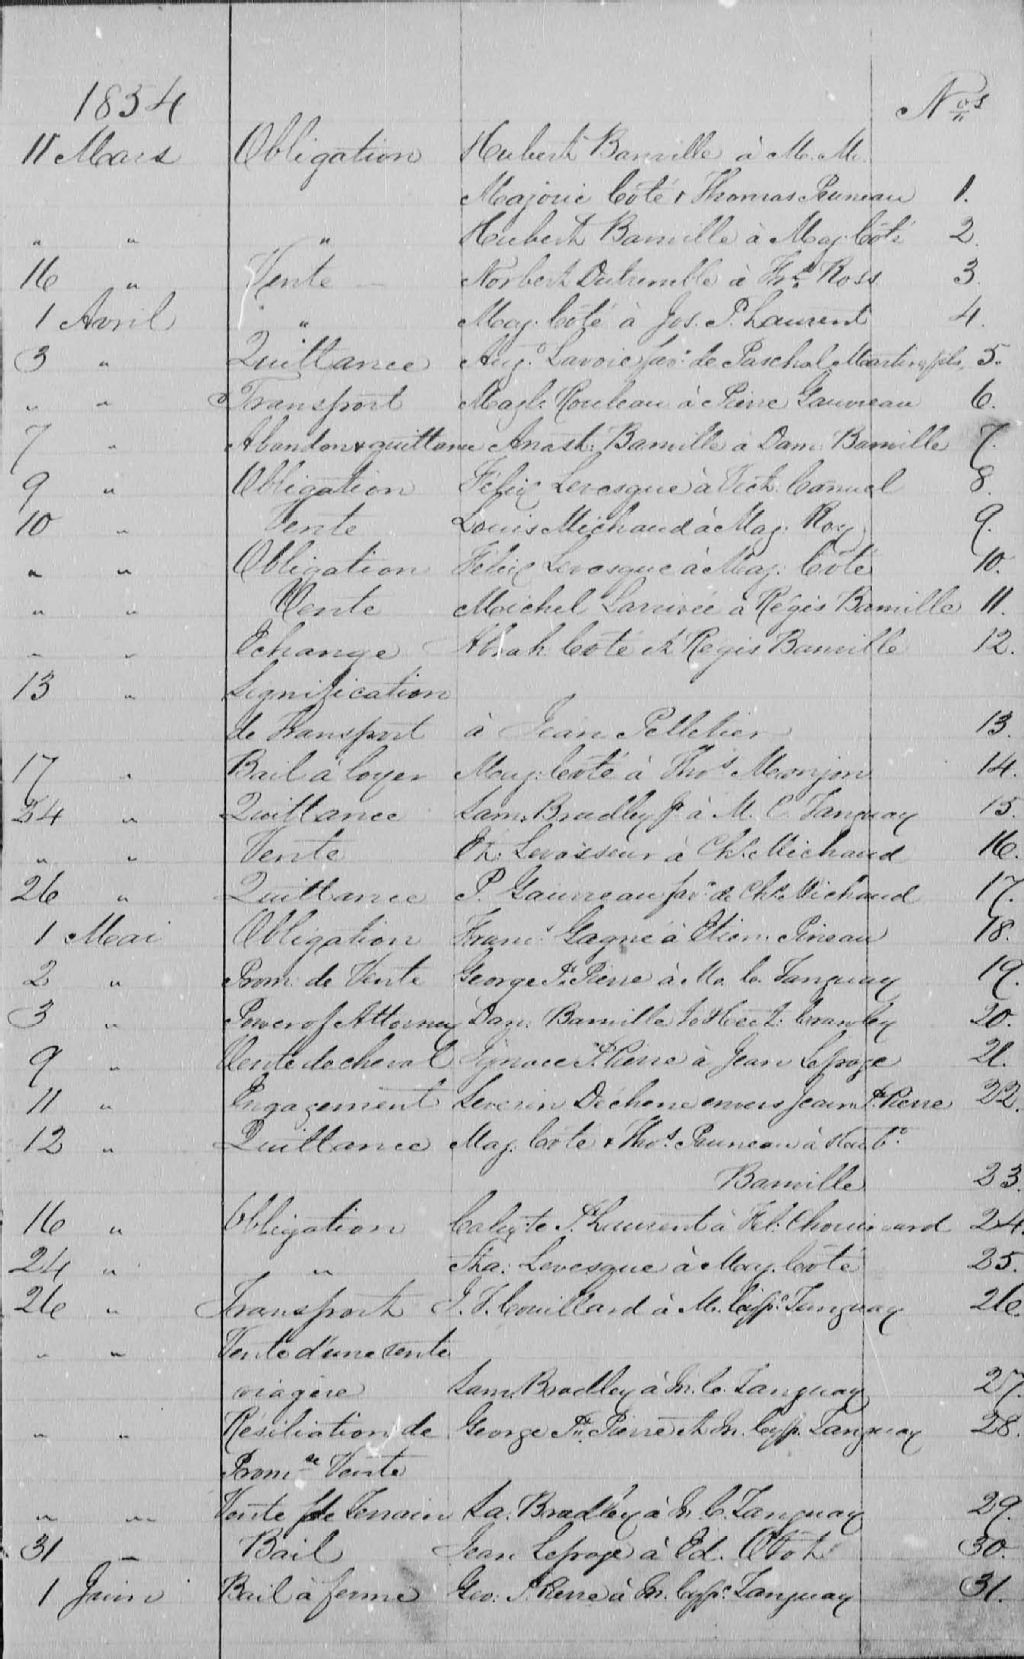 1854 Nos
11 Mars Obligation Hubert Banville à M. M.
Majoric Côté & Thomas Pruneau 1.
" " " Hubert Banville à Maj. Côté 2.
16 " Vente Norbert Dutremble à Ths Ross 3.
1 Avril " Maj. Côté à Jos. St Laurent 4.
3 " Quittance Aug. Lavoie fav. de Paschal Martin fils 5.
" " Transport Magl. Rouleau à Pierre Gauvreau 6.
7 " Abandon & quittance Anast. Banville à Dam. Banville 7.
9 " Obligation Félix Levesque à Vict. Canuel 8.
10 " Vente Louis Michaud à Mag. Roy 9.
" " Obligation Félix Levesque à Maj. Côté 10.
" " Vente Michel Larrivée à Régis Banville 11.
" " Echange Abrah. Coté et Régis Banville 12.
13 " Signification
de Transport à Jean Pelletier 13.
17 " Bail à loyer Maj. Coté à Thos 14.
24 " Quittance Sam. Bradley Jr à M. C. Tanguay 15.
" " Vente Levasseur à Chs Michaud 16.
26 " Quittance P. Gauvreau fav. de Chs Michaud 17.
1 Mai Obligation Frans Gagné à Etien. Pineau 18.
2 " Prom. de Vente George St Pierre à M. C. Tanguay 19.
3 " Power of Attorney Dam. Banville to Hect. Crawley 20.
9 " Vente de cheval Ignace St Pierre à Jean Lepage 21.
11 " Engagement Severin Déchene envers Jean St Pierre 22.
12 " Quittance Maj. Coté & Thos Pruneau à Hubt
Banville 23.
16 " Obligation Calixte St Laurent à Chouinard 24.
24 " " Tha. Levesque à Maj. Coté 25.
26 " Transport J. S. Couillard à M. Cypr. Tanguay 26.
" " Vente d'une rente
viagère Sam. Bradley à M. C. Tanguay 27.
" " Résiliation de George St Pierre et M. Cyp. Tanguay 28.
Prom. de Vente
" " Vente de Terrain Sa. Bradley à M. C. Tanguay 29.
31 " Bail Jean Lepage à Ed. 30.
1 Juin Bail à ferme Geo. St Pierre à M. Cypr. Tanguay 31.